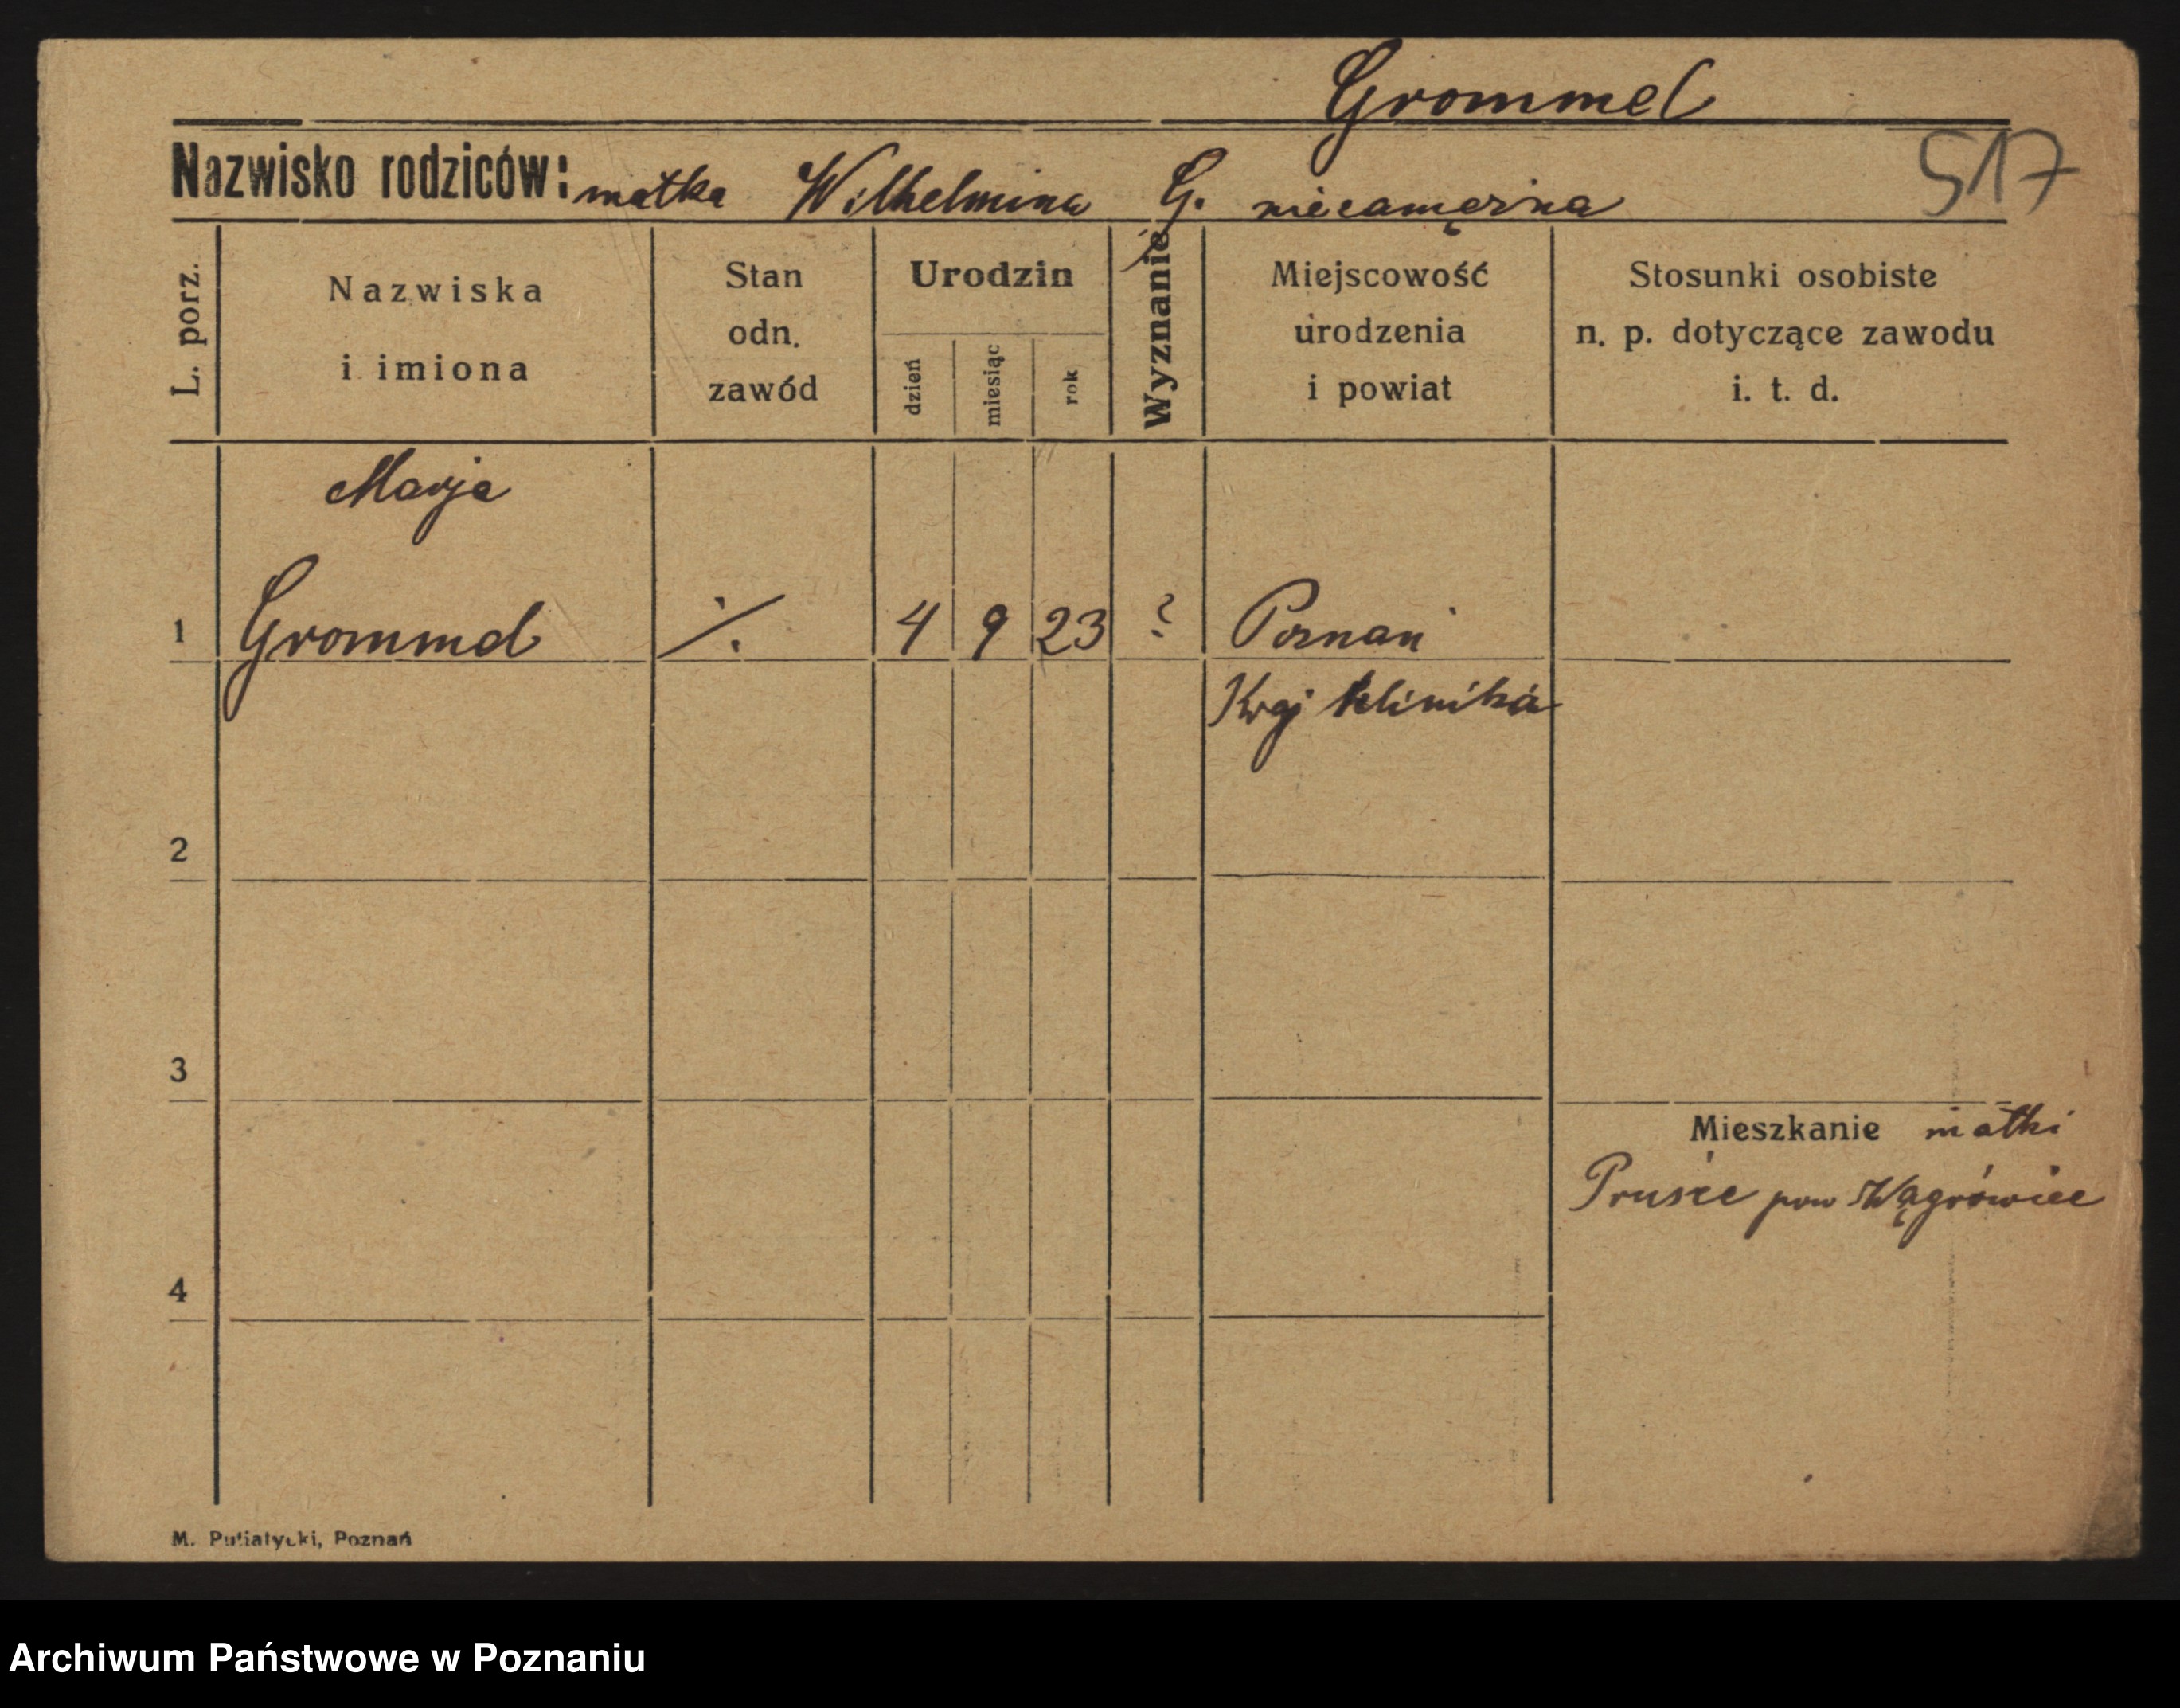 Grommel
517
Nazwisko rodziców: matka Wilhelmina G. niezamężna
L. porz.
Nazwiska
i imiona
Stan
odn.
zawód
Urodzin
dzień
miesiąc
rok
Wyznanie
Miejscowość
urodzenia
i powiat
Stosunki osobiste
n. p. dotyczące zawodu
i. t. d.
Marja
1 Grommel ·/. 4 9 23 ? Poznań
Kraj klinika
2
3
Mieszkanie matki
Prusce pow Wągrówiec
4
M. Putiatycki, Poznań
Archiwum Państwowe w Poznaniu